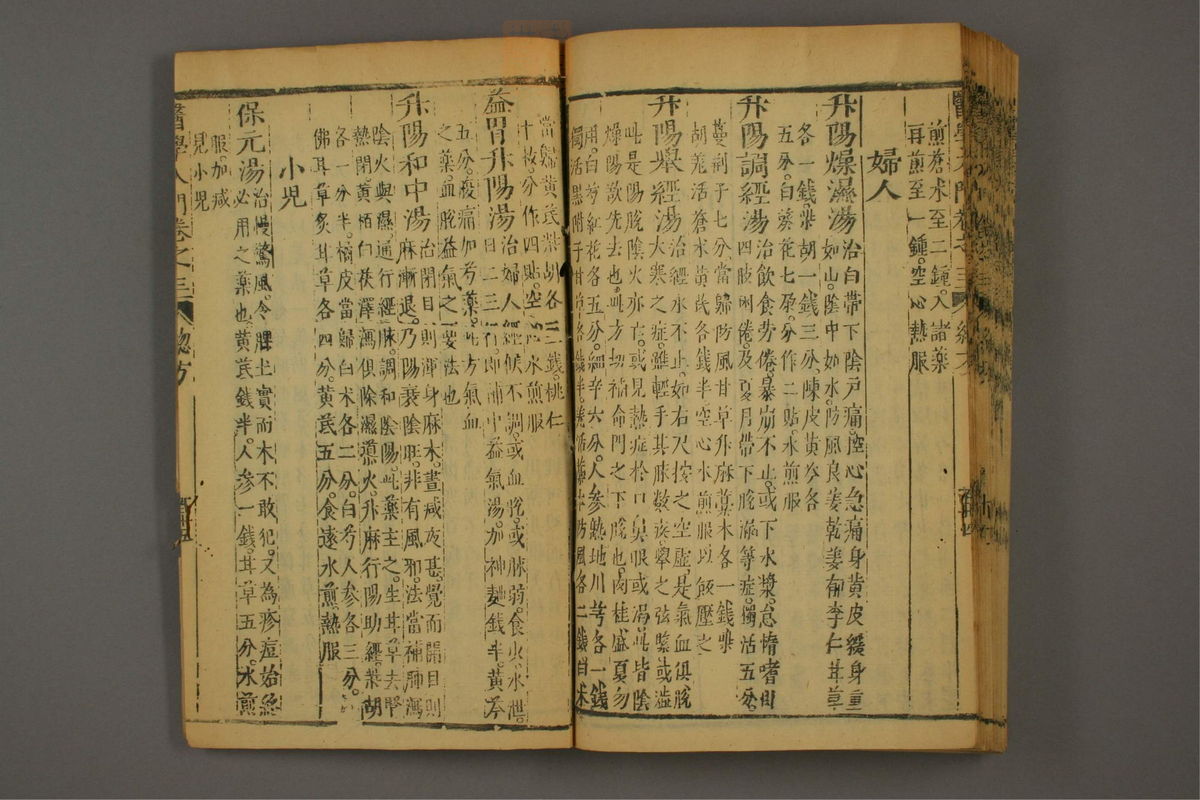 煎蒼朮至二鍾入諸藥
再煎至一鍾空心熱服
婦人
升陽燥濕湯
治白帶下陰戶痛控心急痛身黃皮緩身重
如山陰中如水防風良姜乾姜郁李仁甘草
各一錢柴胡一錢三分陳皮黃芩各
五分白葵花七朵分作二貼水煎服
升陽調經湯
治飲食勞倦暴崩不止或下水漿怠惰嗜臥
四肢困倦及夏月帶下脫漏等症獨活五分
蔓荊子七分當歸防風甘草升麻藁本各一錢柴
胡羌活蒼朮黃芪各錢半空心水煎服以飯壓之
升陽舉經湯
治經水不止如右尺按之空虛是氣血俱脫
大寒之症雖輕手其脉數疾舉之弦緊或澁
此是陽脫陰火亦亡或見熱症於口鼻眼或渴此皆陰
燥陽欲先去也此方切補命門之下脫也肉桂盛夏勿
用白芍紅花各五分細辛六分人參熟地川芎各一錢
獨活黑附子甘草各錢半羌活藁本防風各二錢白朮
當歸黃芪柴胡各三錢桃仁
十枚分作四貼空心水煎服
益胃升陽湯
治婦人經候不調或血脫或脉弱食少水泄
日二三行即補中益氣湯加神麯錢半黃芩
五分腹痛加芍藥此方氣血
之藥血脫益氣之要法也
升陽和中湯
治閉目則渾身麻木晝減夜甚覺而開目則
麻漸退乃陽衰陰旺非有風邪法當補脾瀉
陰火與濕通行經脉調和陰陽此藥主之生甘草去腎
熱閉黃栢白茯澤瀉俱除濕導火升麻行陽助經柴胡
各一分半橘皮當歸白朮各二分白芍人參各三分
佛耳草炙甘草各四分黃芪五分食遠水煎熱服
小兒
保元湯
治慢驚風令脾土實而木不敢犯又為疹痘始終
必用之藥也黃芪錢半人參一錢甘草五分水煎
服加減
見小兒
醫學入門卷之三 總方